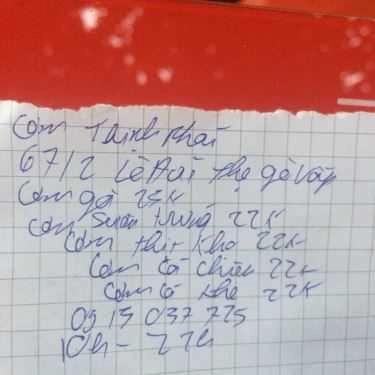 Cơm Thịnh Phát
67/2 Lê Đức Thọ gò vấp
Cơm gà 25K
cơm sườn trứng 22K
Cơm thịt kho 22K
Cơm cá chiên 22K
Cơm cá kho 22K
0915 037 775
10h - 22h